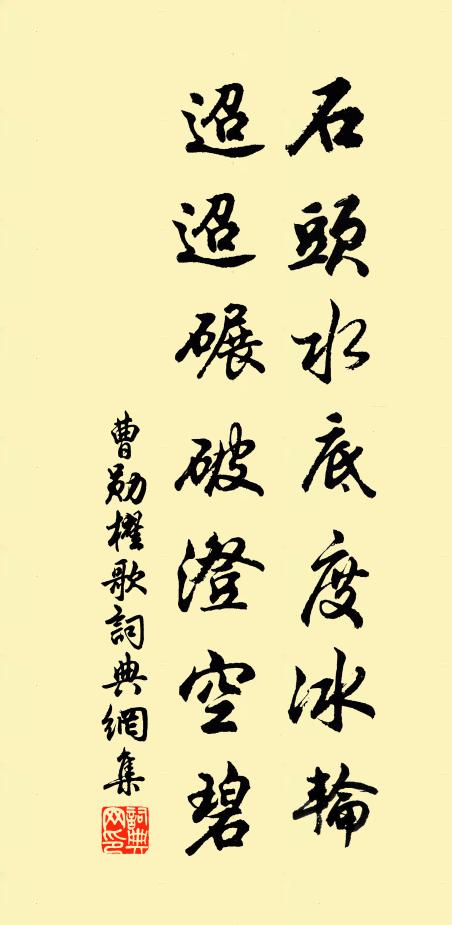 石頭水底度冰輪
迢迢碾破澄空碧
曹勛櫂歌詞典網集
詞典网印